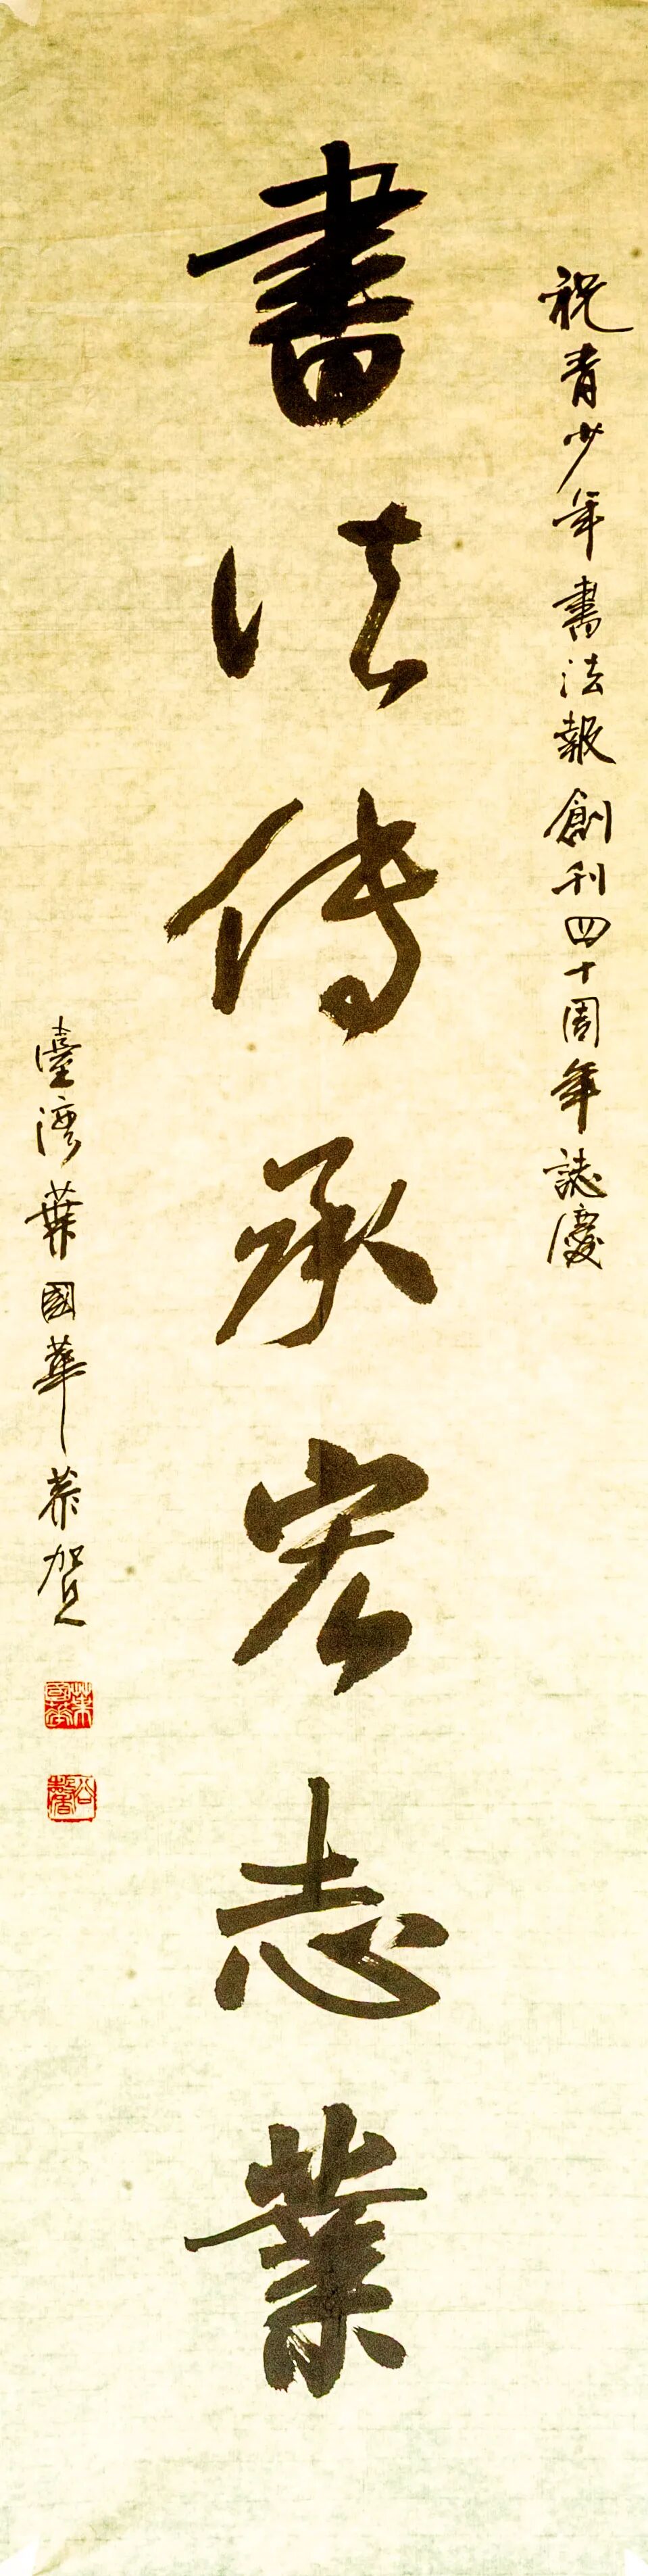 祝青少年書法報創刊四十周年誌慶
書法傳承宏志業
臺灣葉國華恭賀
葉國華